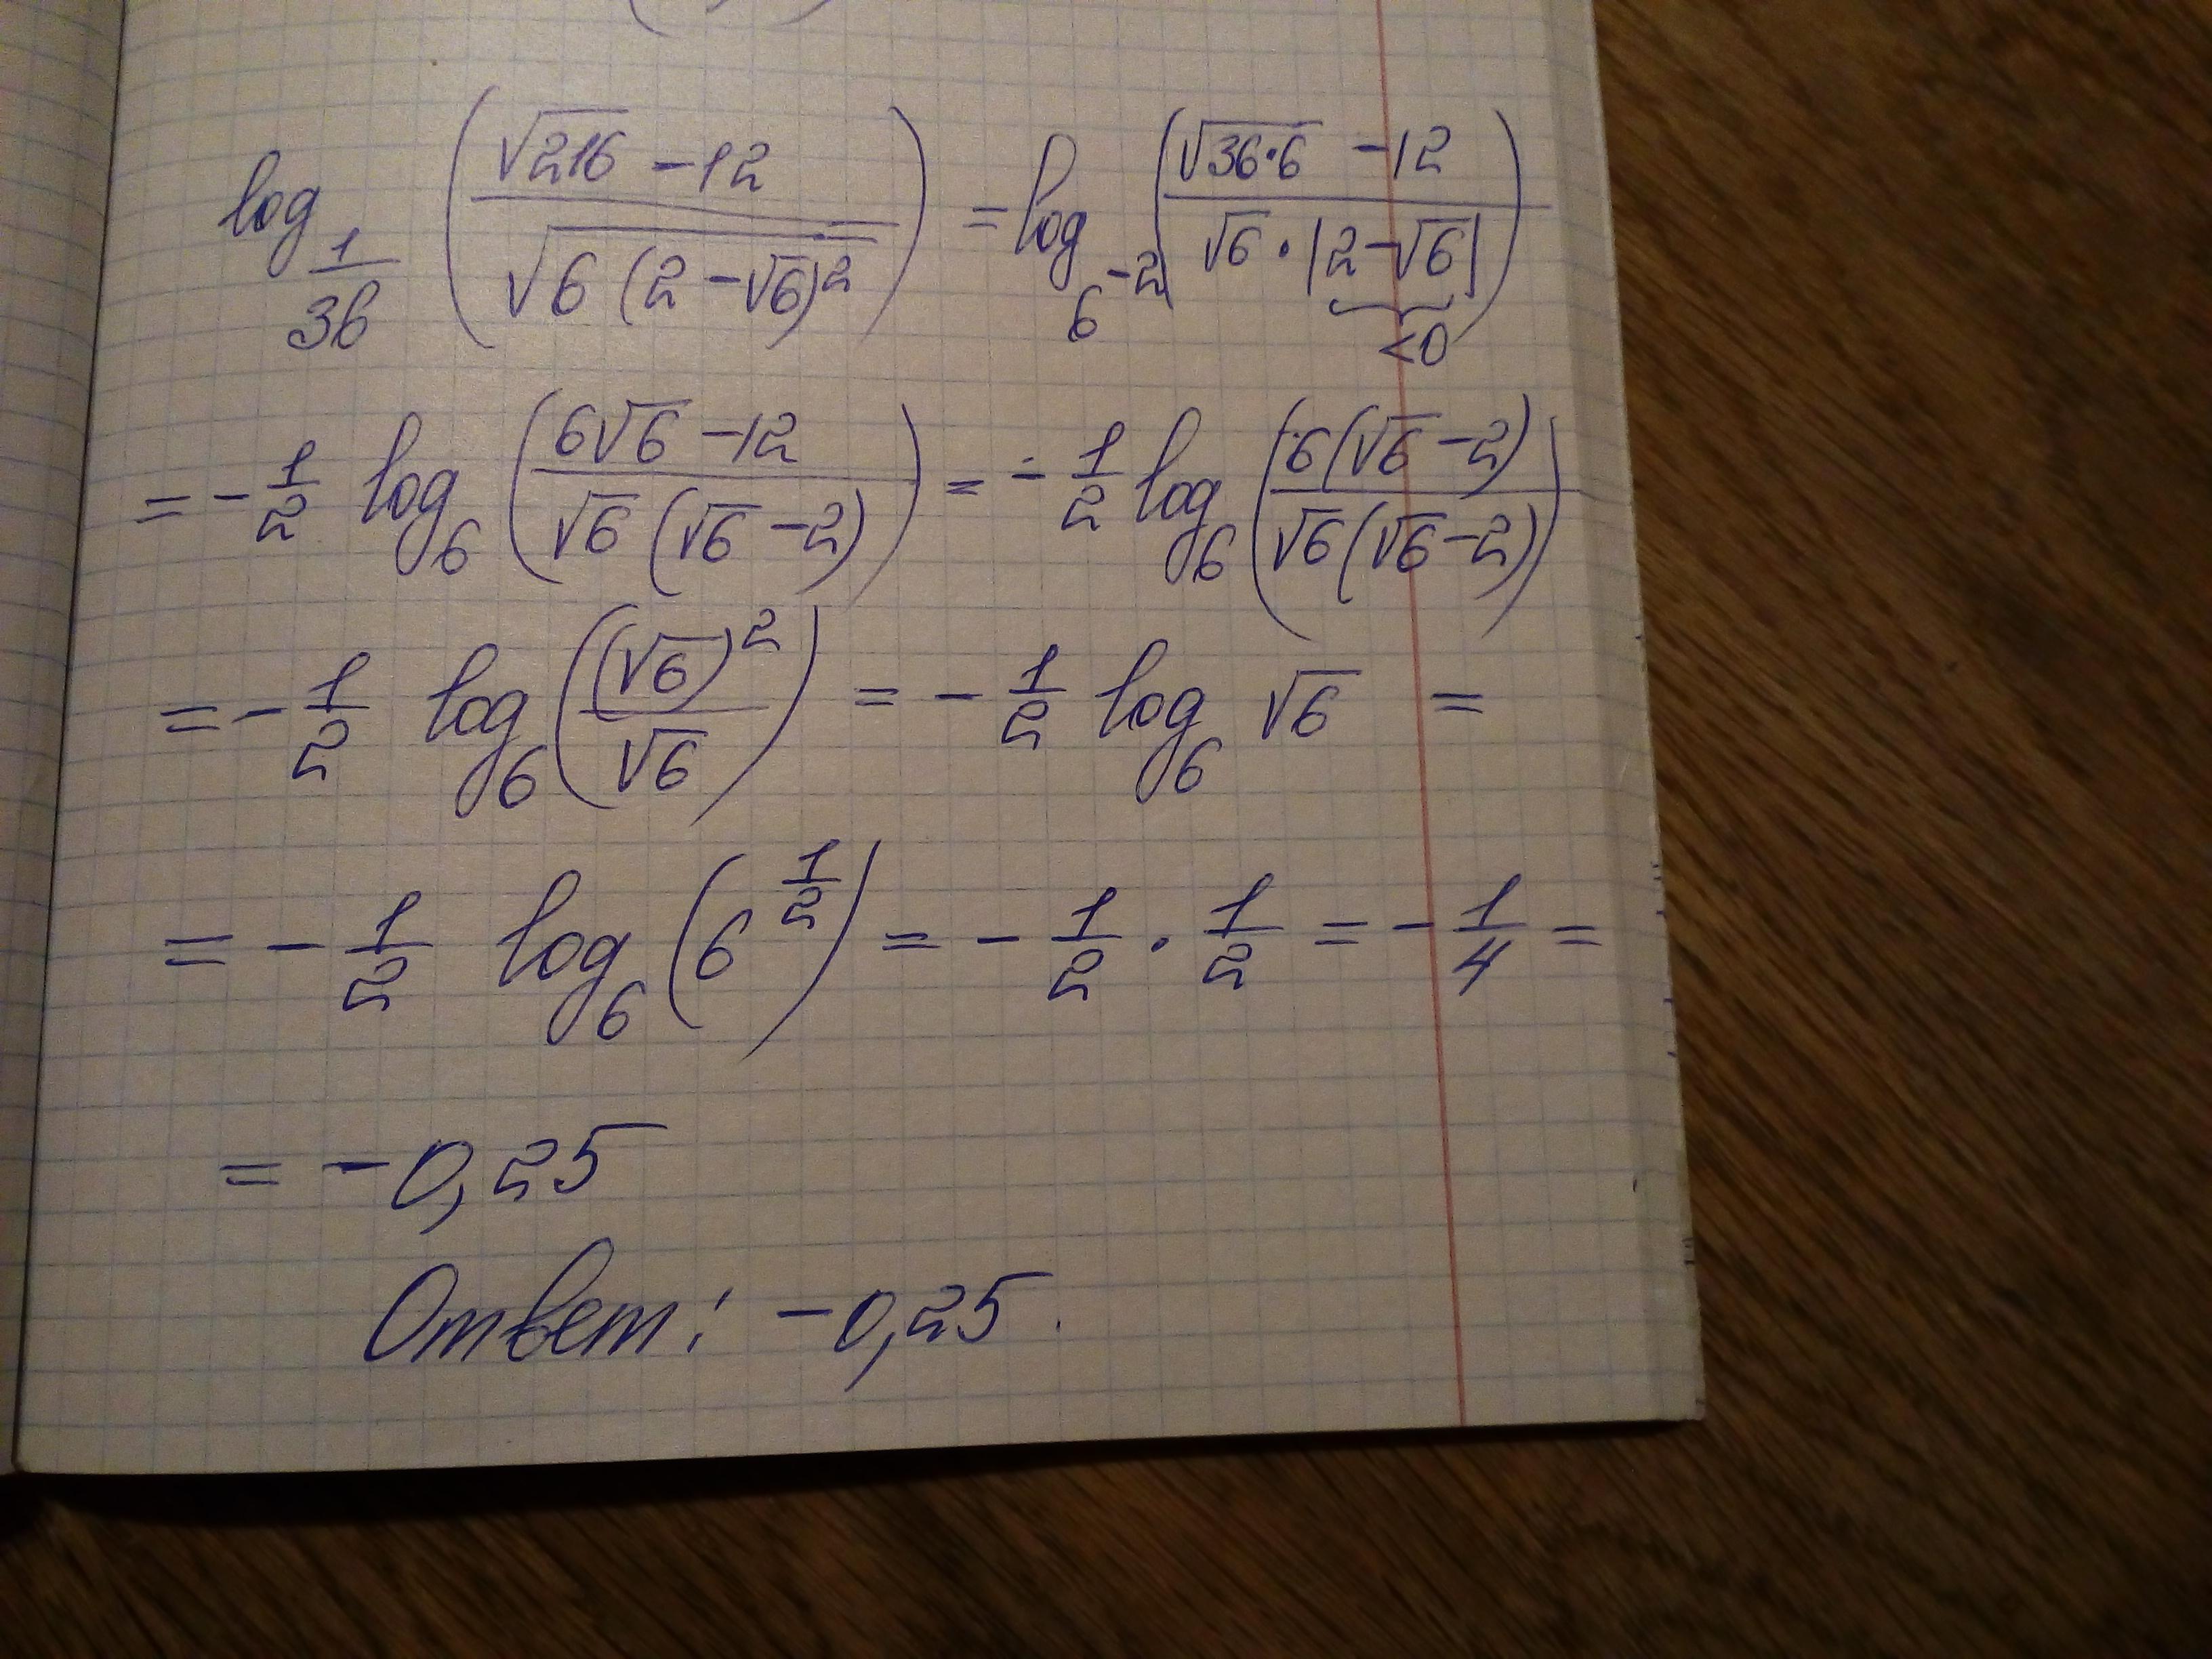 log_{1/36} ((√216 − 12)/(√(6(2 − √6)²))) = log_{6^{-2}} ((√(36·6) − 12)/(√6 · |2 − √6|)) <0
= − 1/2 log_6 ((6√6 − 12)/(√6 (√6 − 2))) = − 1/2 log_6 ((6(√6 − 2))/(√6(√6 − 2)))
= − 1/2 log_6 ((√6)²/√6) = − 1/2 log_6 √6 =
= − 1/2 log_6 (6^{1/2}) = − 1/2 · 1/2 = − 1/4 =
= −0,25
Ответ: −0,25.